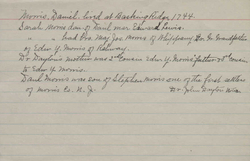 Morris, Daniel. lived at Basking Ridge 1744
Sarah Morris dau of Daniel mar Edward Lewis.
" " had bro. Maj Jos. Morris of Whippany Gr Grandfather
of Edw Y. Morris of Rahway.
Dr Dayton's mother was 2nd Cousin Edw Y. Morris' father & 3rd Cousin
to Edw Y. Morris.
Danl Morris was son of Stephen Morris one of the first settlers
of Morris Co. N. J.
Dr John Dayton